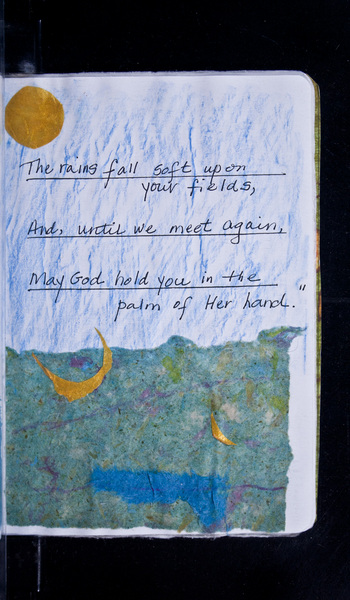 The rains fall soft upon
your fields,
And, until we meet again,
May God hold you in the
palm of Her hand."